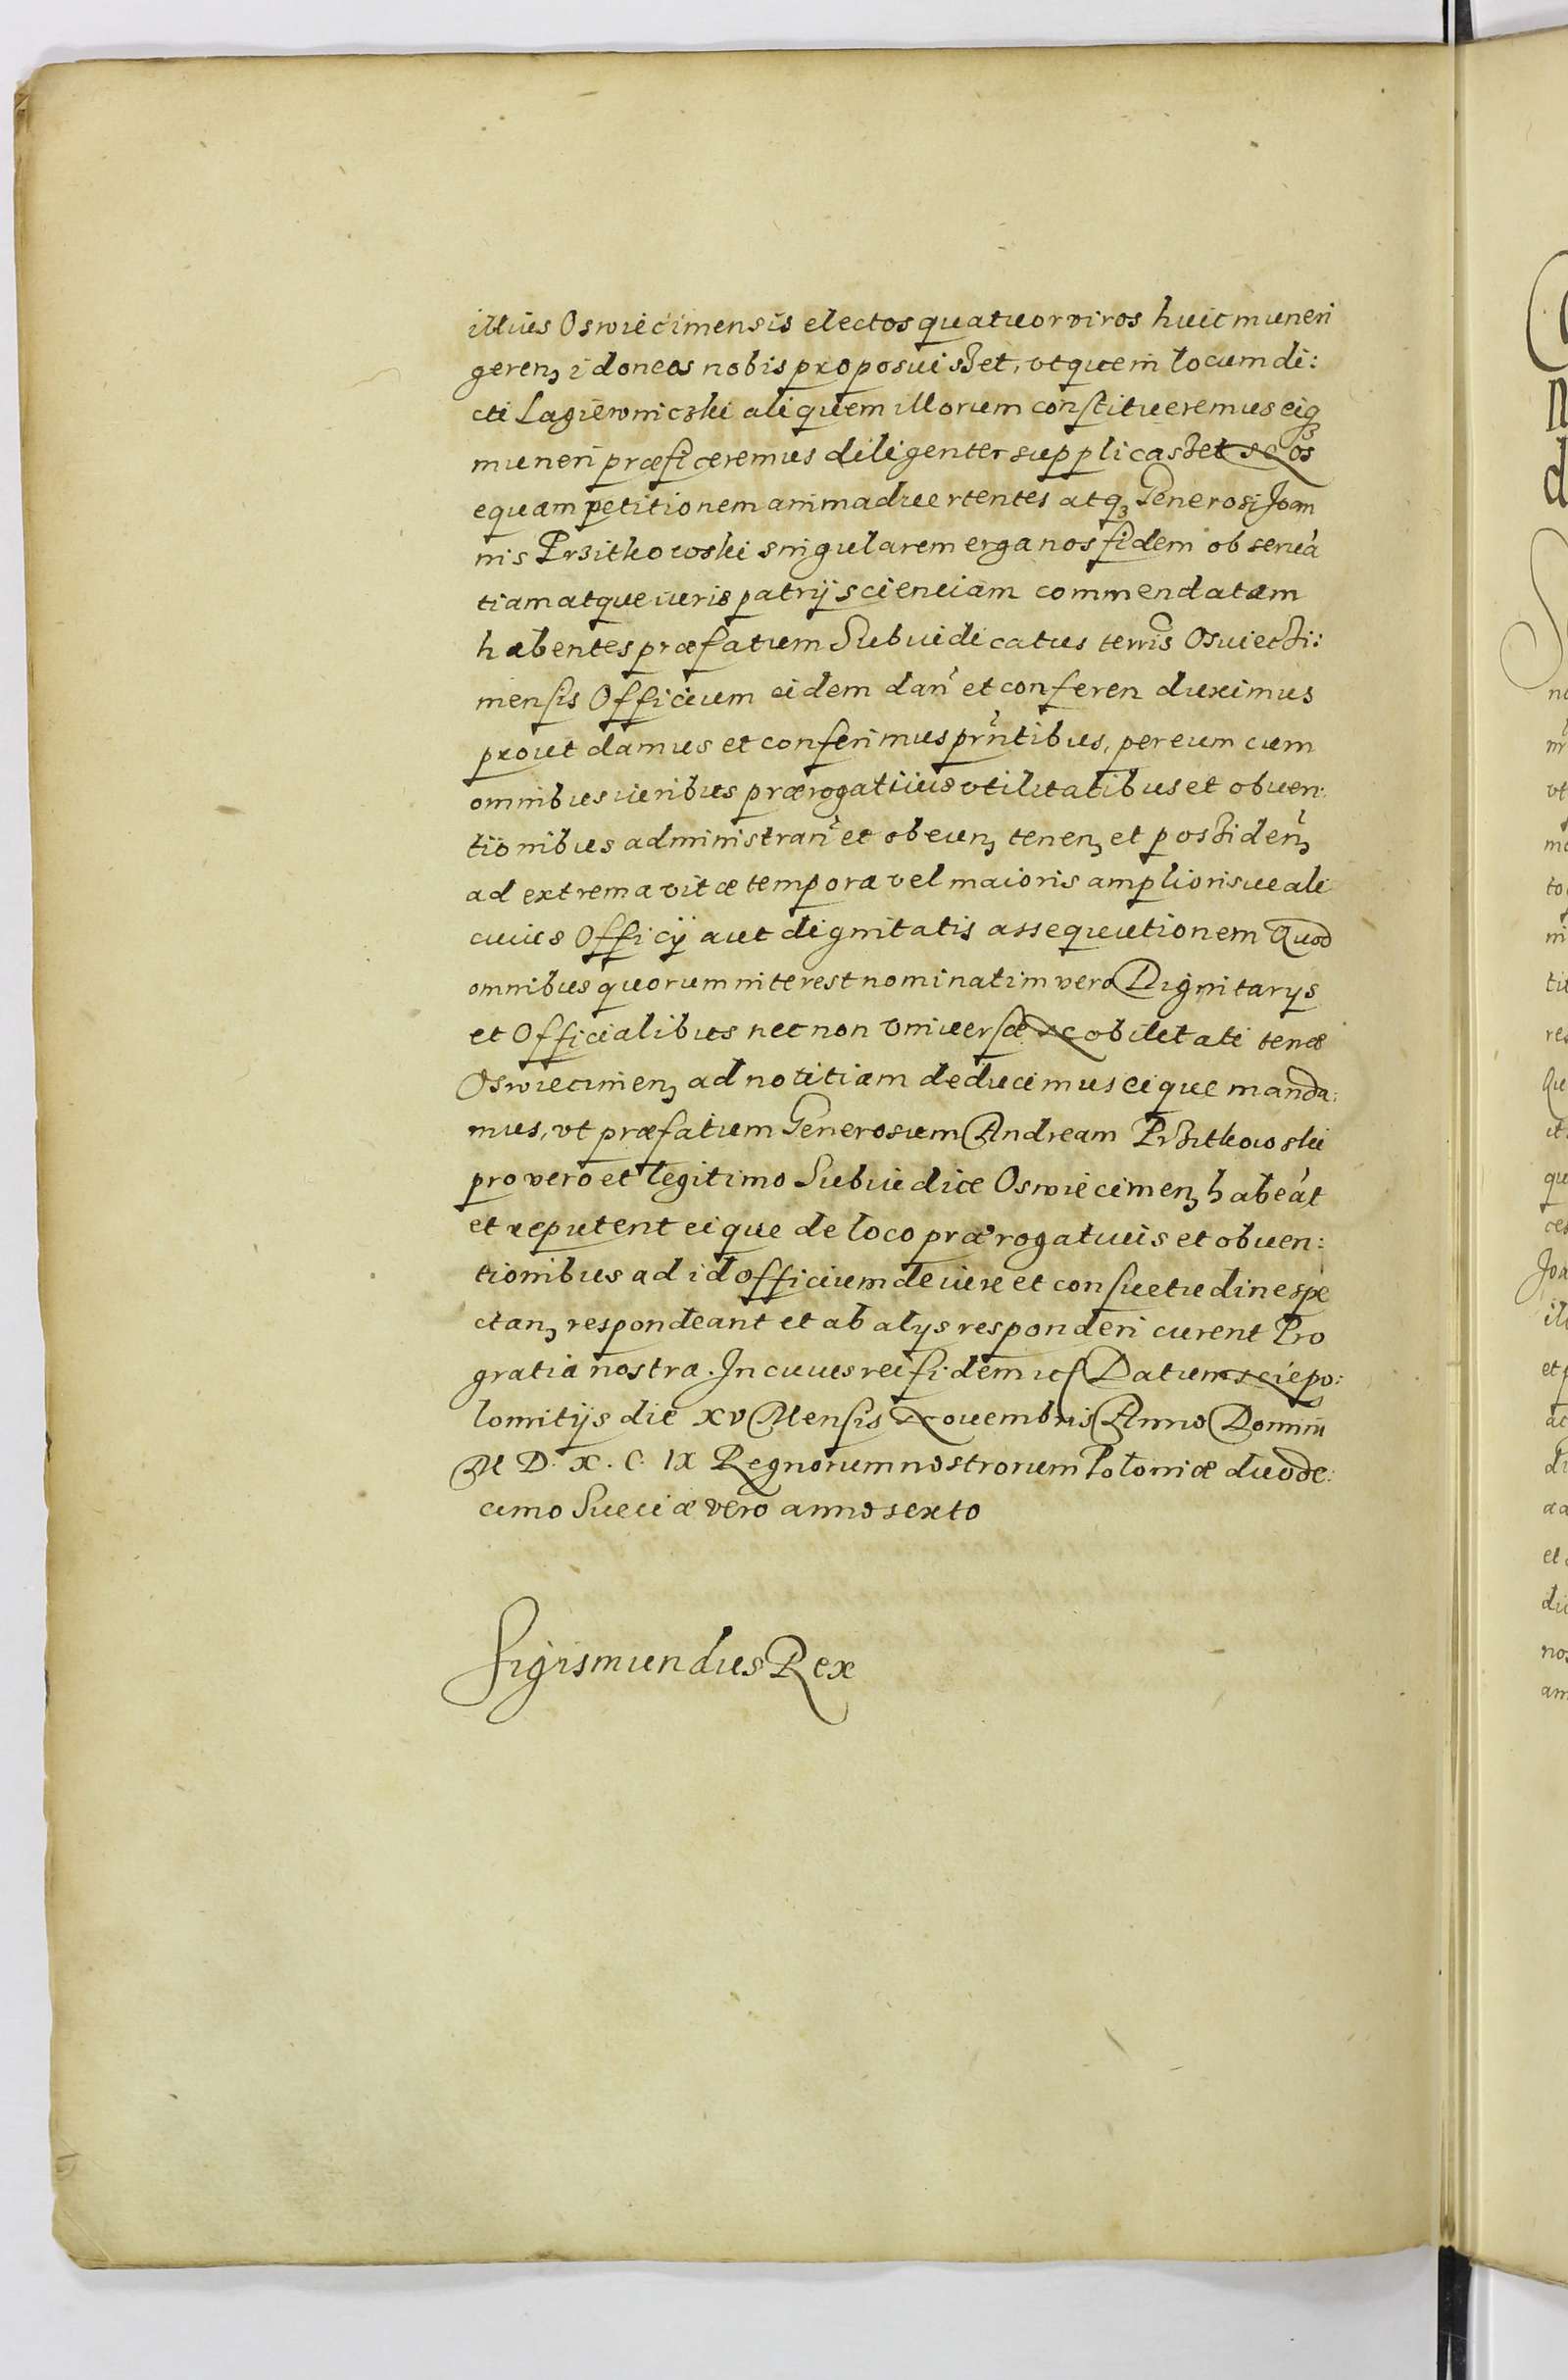 illius Oswiecimensis electos quatuor viros huic muneri
gerenꝫ idoneos nobis proposuisset, vt quem locum di:
cti Lagiewniczki aliquem illorum constitueremus eiqꝫ
muneri præficeremus diligenter supplicasset Nos
equam petitionem animaduertentes atqꝫ Generosi Joan
nis Przitkowski singularem erga nos fidem obseruá
tiam atque iuris patrij scienciam commendatam
habentes præfatum Subiudicatus terris Osuiecsi:
mensis Officium eidem dañ et conferen duximus
prout damus et conferimus prñtibus, per eum cum
omnibus iuribus prærogatiuis vtilitatibus et obuen:
tionibus administrañ et obeunꝫ tenenꝫ et possidenꝫ
ad extrema vitæ tempora vel maioris ampliorisue ali
cuius Officij aut dignitatis assequutionem Quod
omnibus quorum interest nominatim vero Dignitarys
et Officialibus nec non vniuersæ Nobilitati terræ
Oswiecimenꝫ ad notitiam deducimus eique manda:
mus, vt præfatum Generosum Andream Przitkowski
pro vero et legitimo Subiudice Oswiecimenꝫ habeát
et reputent eique de loco prærogatiuis et obuen:
tionibus ad id officium de iure et consuetudine spe
ctanꝫ respondeant et ab alys responderi curent Pro
gratia nostra. In cuius rei fidem ic Datum Niepo:
lomitijs die XV Mensis Nouembris Anno Domini
M D. X. C. IX Regnorum nostrorum Poloniæ duode:
cimo Sueciæ vero anno sexto
Sigismundus Rex